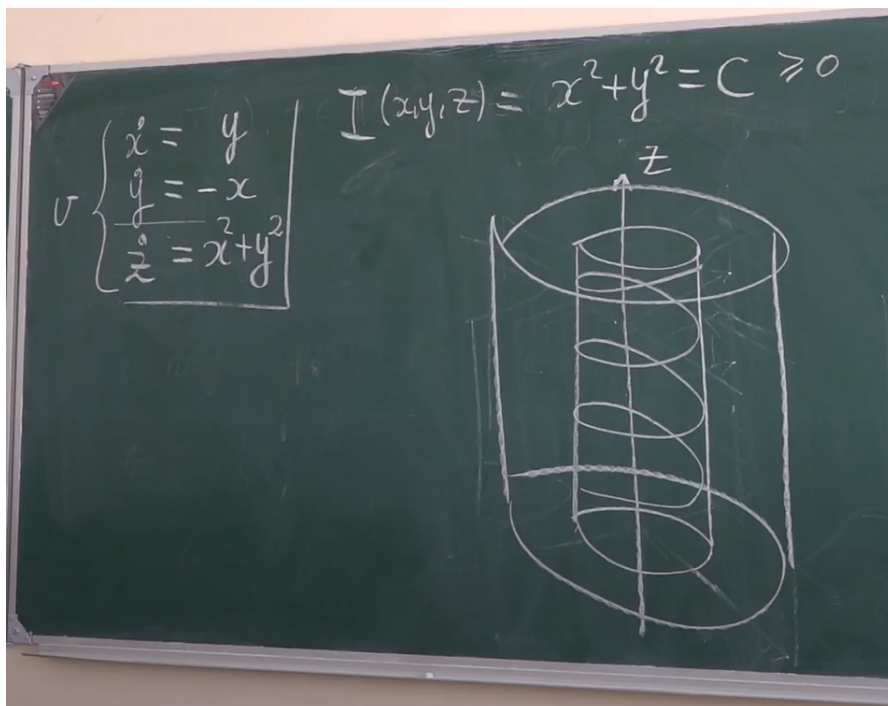 v { ẋ = y
ẏ = - x
ż = x² + y²
I (x,y,z) = x² + y² = C ⩾ 0
z